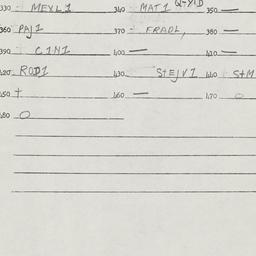 330 MEYL1 340 MAT1 350 —
360 PAJ1 370 - FRADL, 380 —
390 CIN1 400 — 410 —
420 ROD1 430 STEJV1 440 S+M
450 + 460 — 470 O
480 O